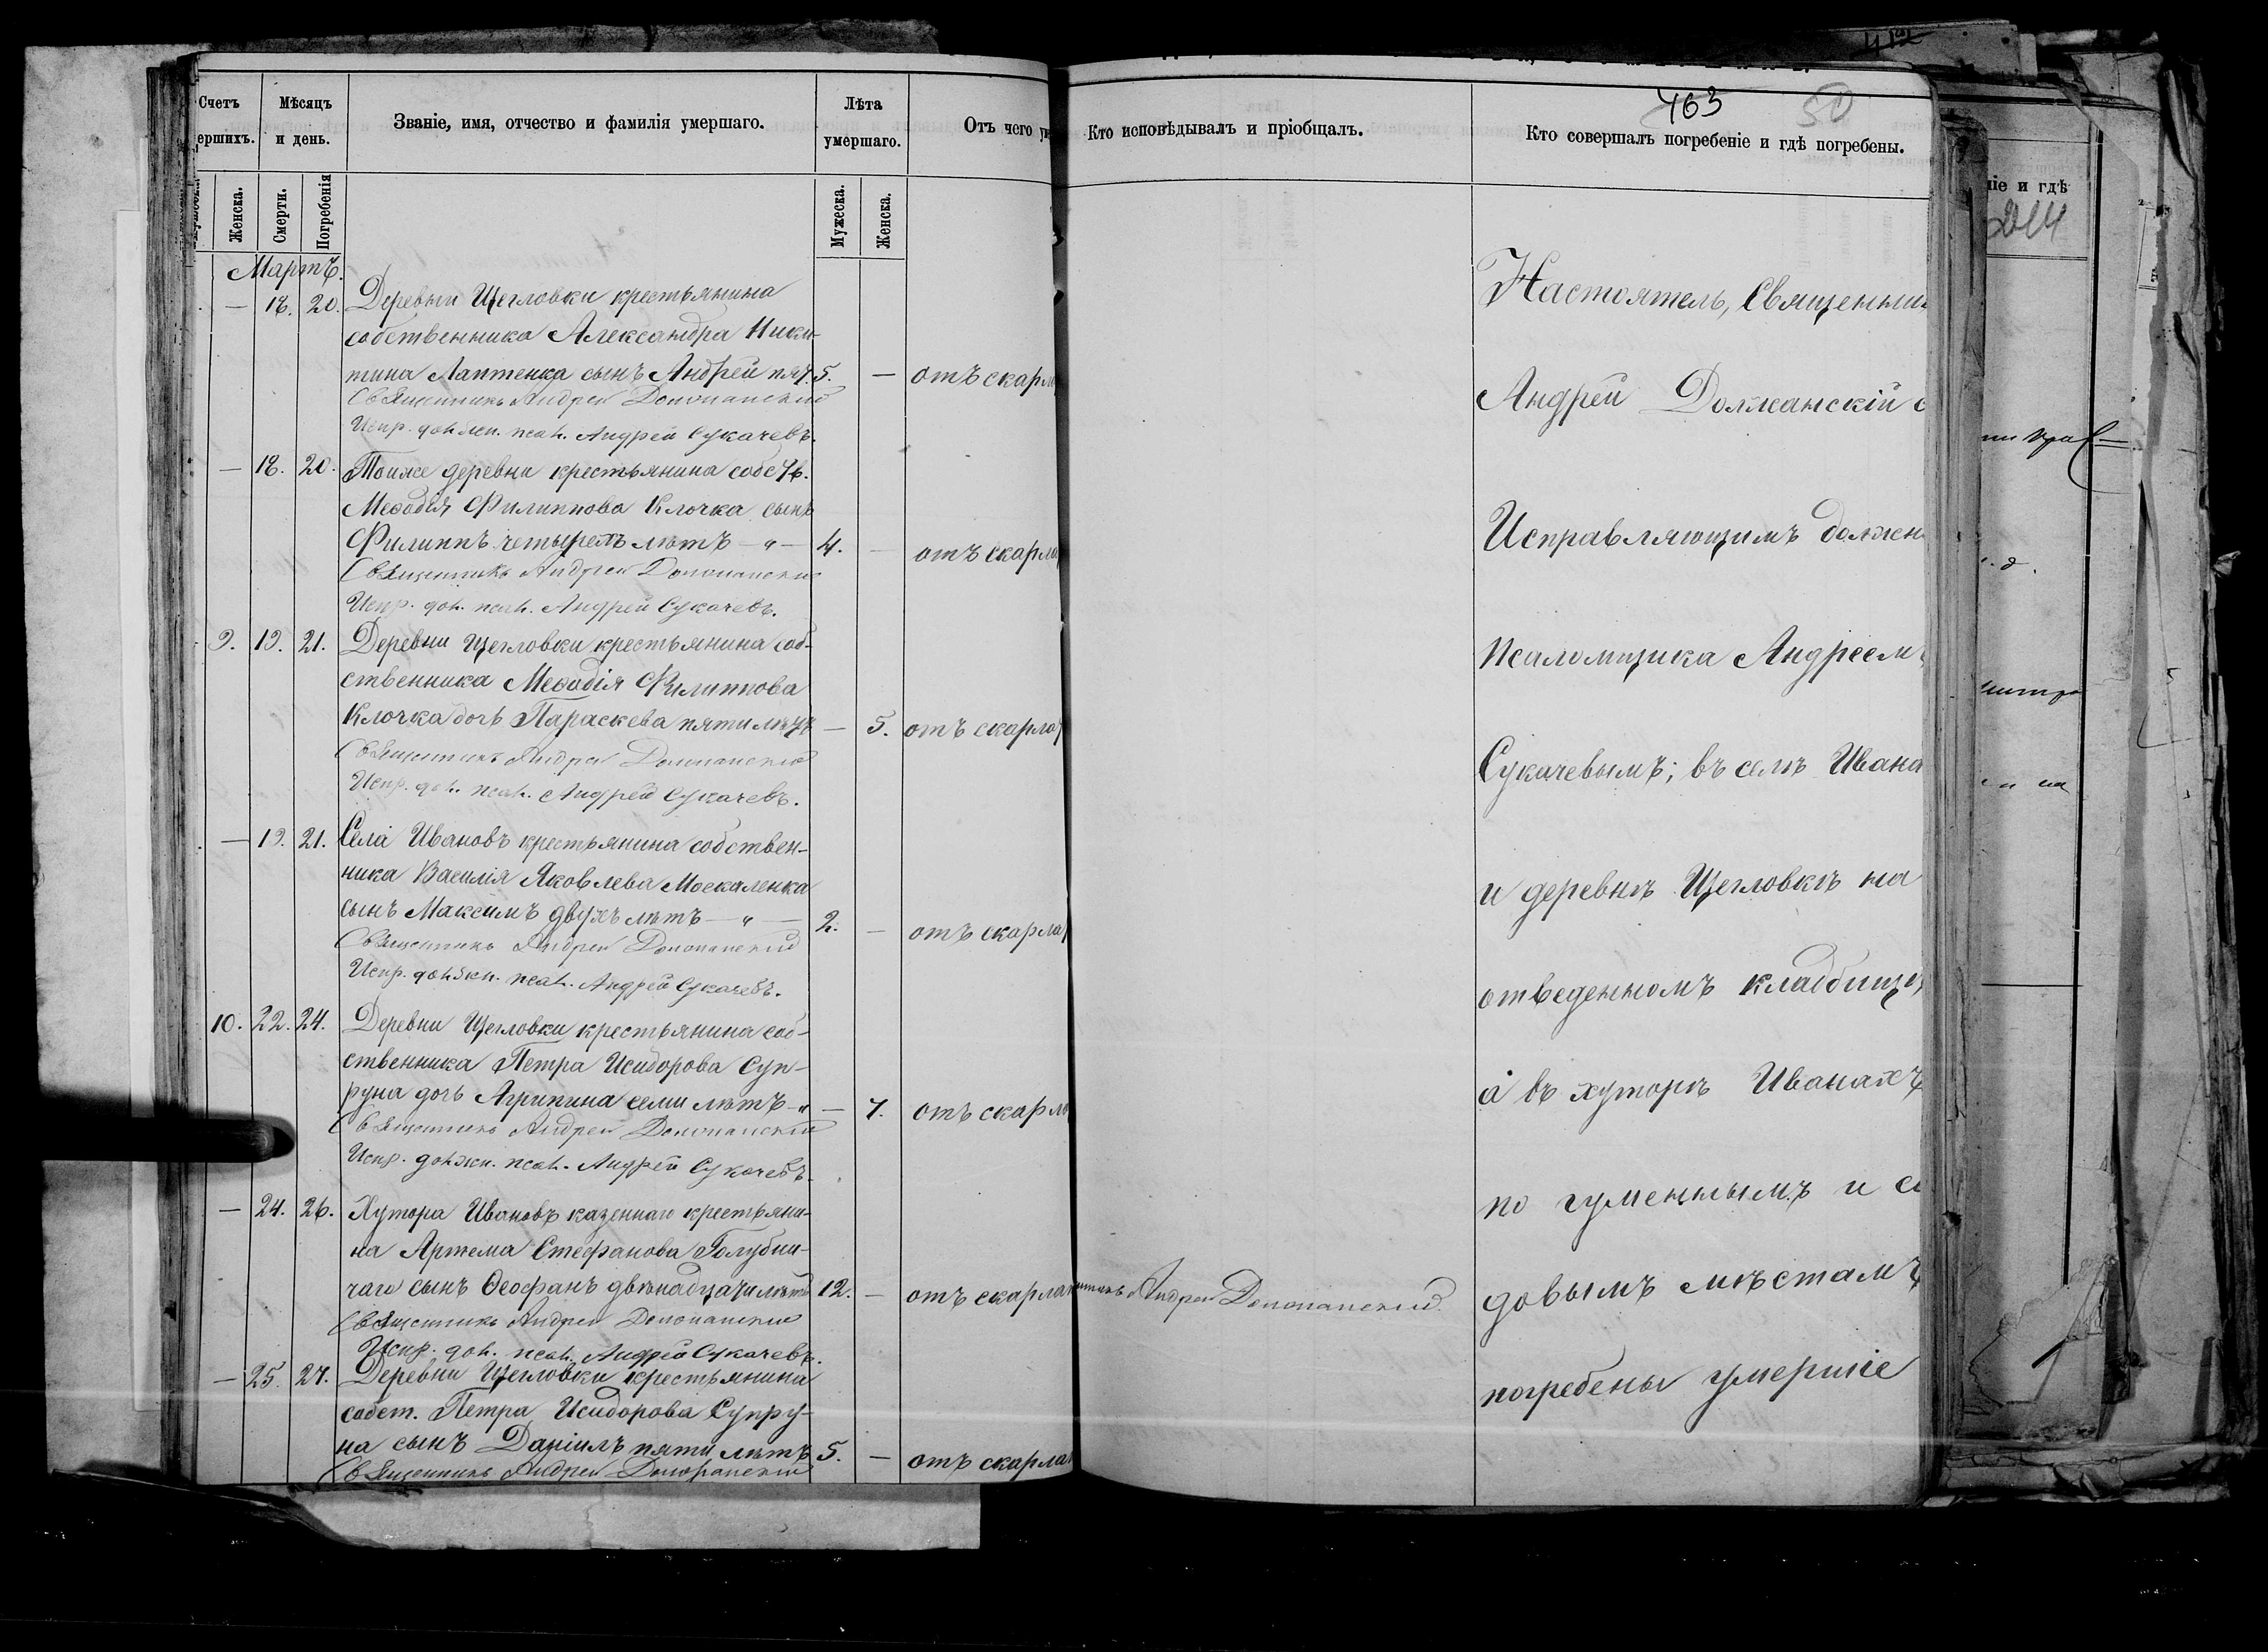 Счетъ
ершихъ.
Мѣсяцъ
и день.
Званіе, имя, отчество и фамилія умершаго.
Лѣта
умершаго.
Отъ чего ум
Женска.
Смерти.
Погребенія
Мужеска.
Женска.
Мартъ.
— 18. 20. Деревни Щегловки крестьянина
собственника Александра Ники-
тина Лаптенка сынъ Андрей пят. 5. — отъ скарл
Священникъ Андрей Должанскій
Испр. должн. псал. Андрей Сукачевъ.
— 18. 20. Тойже деревни крестьянина собств.
Меѳодія Филиппова Клочка сынъ
Филиппъ четырехъ лѣтъ — „ — 4. — отъ скарла
Священникъ Андрей Должанскій
Испр. дол. псал. Андрей Сукачевъ.
9. 19. 21. Деревни Щегловки крестьянина соб-
ственника Меѳодія Филиппова
Клочка дочь Параскева пяти лѣтъ — 5. отъ скарлат
Священникъ Андрей Должанскій
Испр. дол. псал. Андрей Сукачевъ.
— 19. 21. Села Ивановъ крестьянина собствен-
ника Василія Яковлева Москаленка
сынъ Максимъ двухъ лѣтъ — „ — 2. — отъ скарлат
Священникъ Андрей Должанскій
Испр. должн. псал. Андрей Сукачевъ.
10. 22. 24. Деревни Щегловки крестьянина соб-
ственника Петра Исидорова Суп-
руна дочь Агрипина семи лѣтъ — „ — 7. отъ скарла
Священникъ Андрей Должанскій
Испр. должн. псал. Андрей Сукачевъ.
— 24. 26. Хутора Ивановъ казеннаго крестьяни-
на Артема Стефанова Голубни-
чаго сынъ Ѳеофанъ двѣнадцати лѣтъ 12. — отъ скарлат
Священникъ Андрей Должанскій
Испр. дол. псал. Андрей Сукачевъ.
— 25. 27. Деревни Щегловки крестьянина
собст. Петра Исидорова Супру-
на сынъ Даніилъ пяти лѣтъ 5. — отъ скарлат
Священникъ Андрей Должанскій
463
50
Кто исповѣдывалъ и пріобщалъ.
Кто совершалъ погребеніе и гдѣ погребены.
нникъ Андрей Должанскій.
Настоятель, Священник
Андрей Должанскій с
Исправляющимъ должн
псаломщика Андреемъ
Сукачевымъ; въ селѣ Ивана
и деревнѣ Щегловкѣ на
отведенномъ кладбищѣ,
а въ хуторѣ Иванахъ
по гуменнымъ и са
довымъ мѣстамъ
погребены умершіе
ніе и гдѣ
214